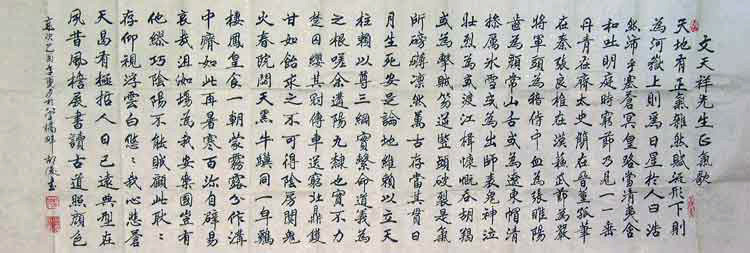 文天祥先生正氣歌
天地有正氣雜然賦流形下則
為河嶽上則為日星於人曰浩
然沛乎塞蒼冥皇路當清夷含
和吐明庭時窮節乃見一一垂
丹青在齊太史簡在晉董狐筆
在秦張良椎在漢蘇武節為嚴
將軍頭為嵇侍中血為張睢陽
齒為顏常山舌或為遼東帽清
操厲冰雪或為出師表鬼神泣
壯烈或為渡江楫慷慨吞胡羯
或為擊賊笏逆豎頭破裂是氣
所磅礴凜然萬古存當其貫日
月生死安足論地維賴以立天
柱賴以尊三綱實繫命道義為
之根嗟余遘陽九隸也實不力
楚囚纓其冠傳車送窮北鼎鑊
甘如飴求之不可得陰房闃鬼
火春院閟天黑牛驥同一皁雞
棲鳳凰食一朝蒙霧露分作溝
中瘠如此再暑寒百沴自辟易
哀哉沮洳場為我安樂國豈有
他繆巧陰陽不能賊顧此耿々
存仰視浮雲白悠々我心悲蒼
天曷有極哲人日已遠典型在
夙昔風檐展書讀古道照顏色